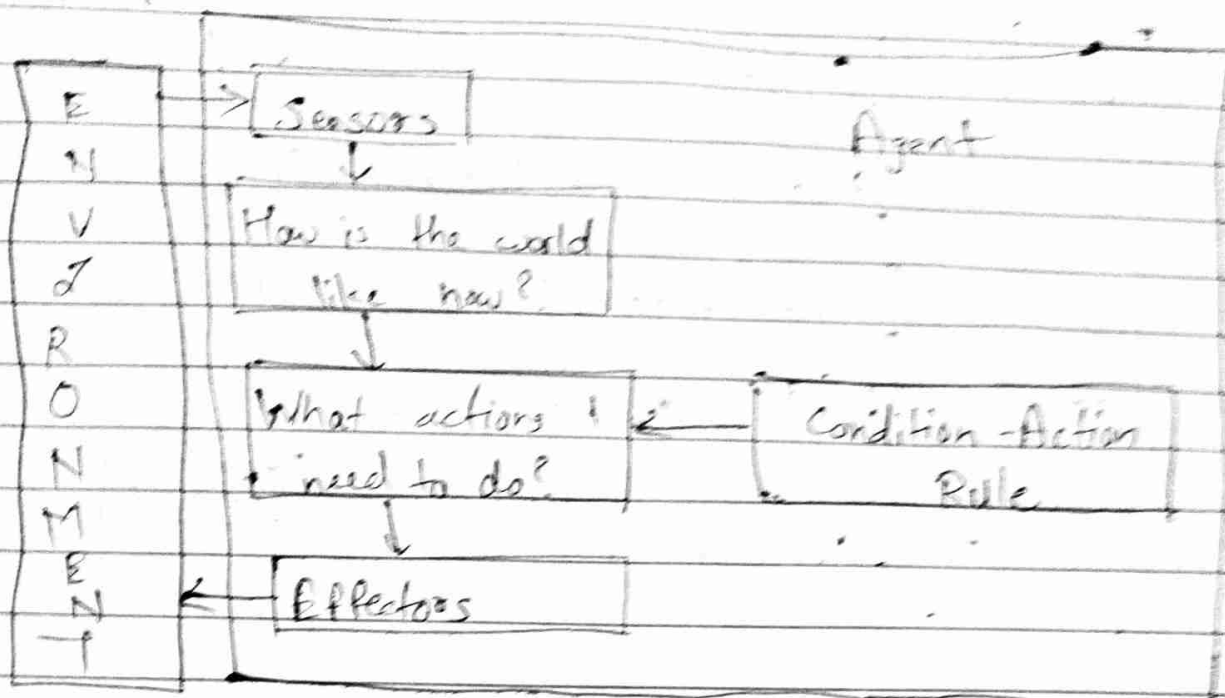 ENVIRONMENT
Sensors
Agent
How is the world
like now?
What actions I
need to do?
Condition-Action
Rule
Effectors